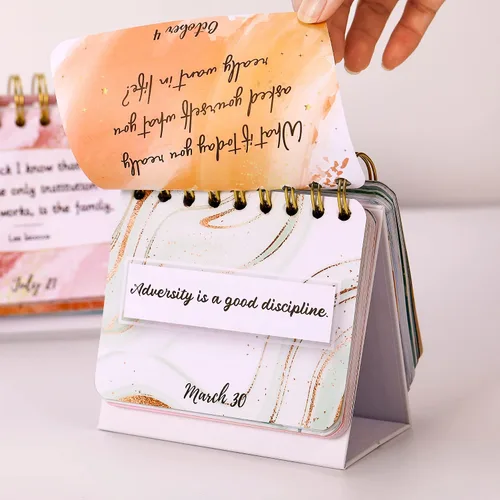 What if today you really
asked yourself what you
really want in life?
October 4
Adversity is a good discipline.
March 30
I know
only
works, is the family.
Lee Iacocca
July 21